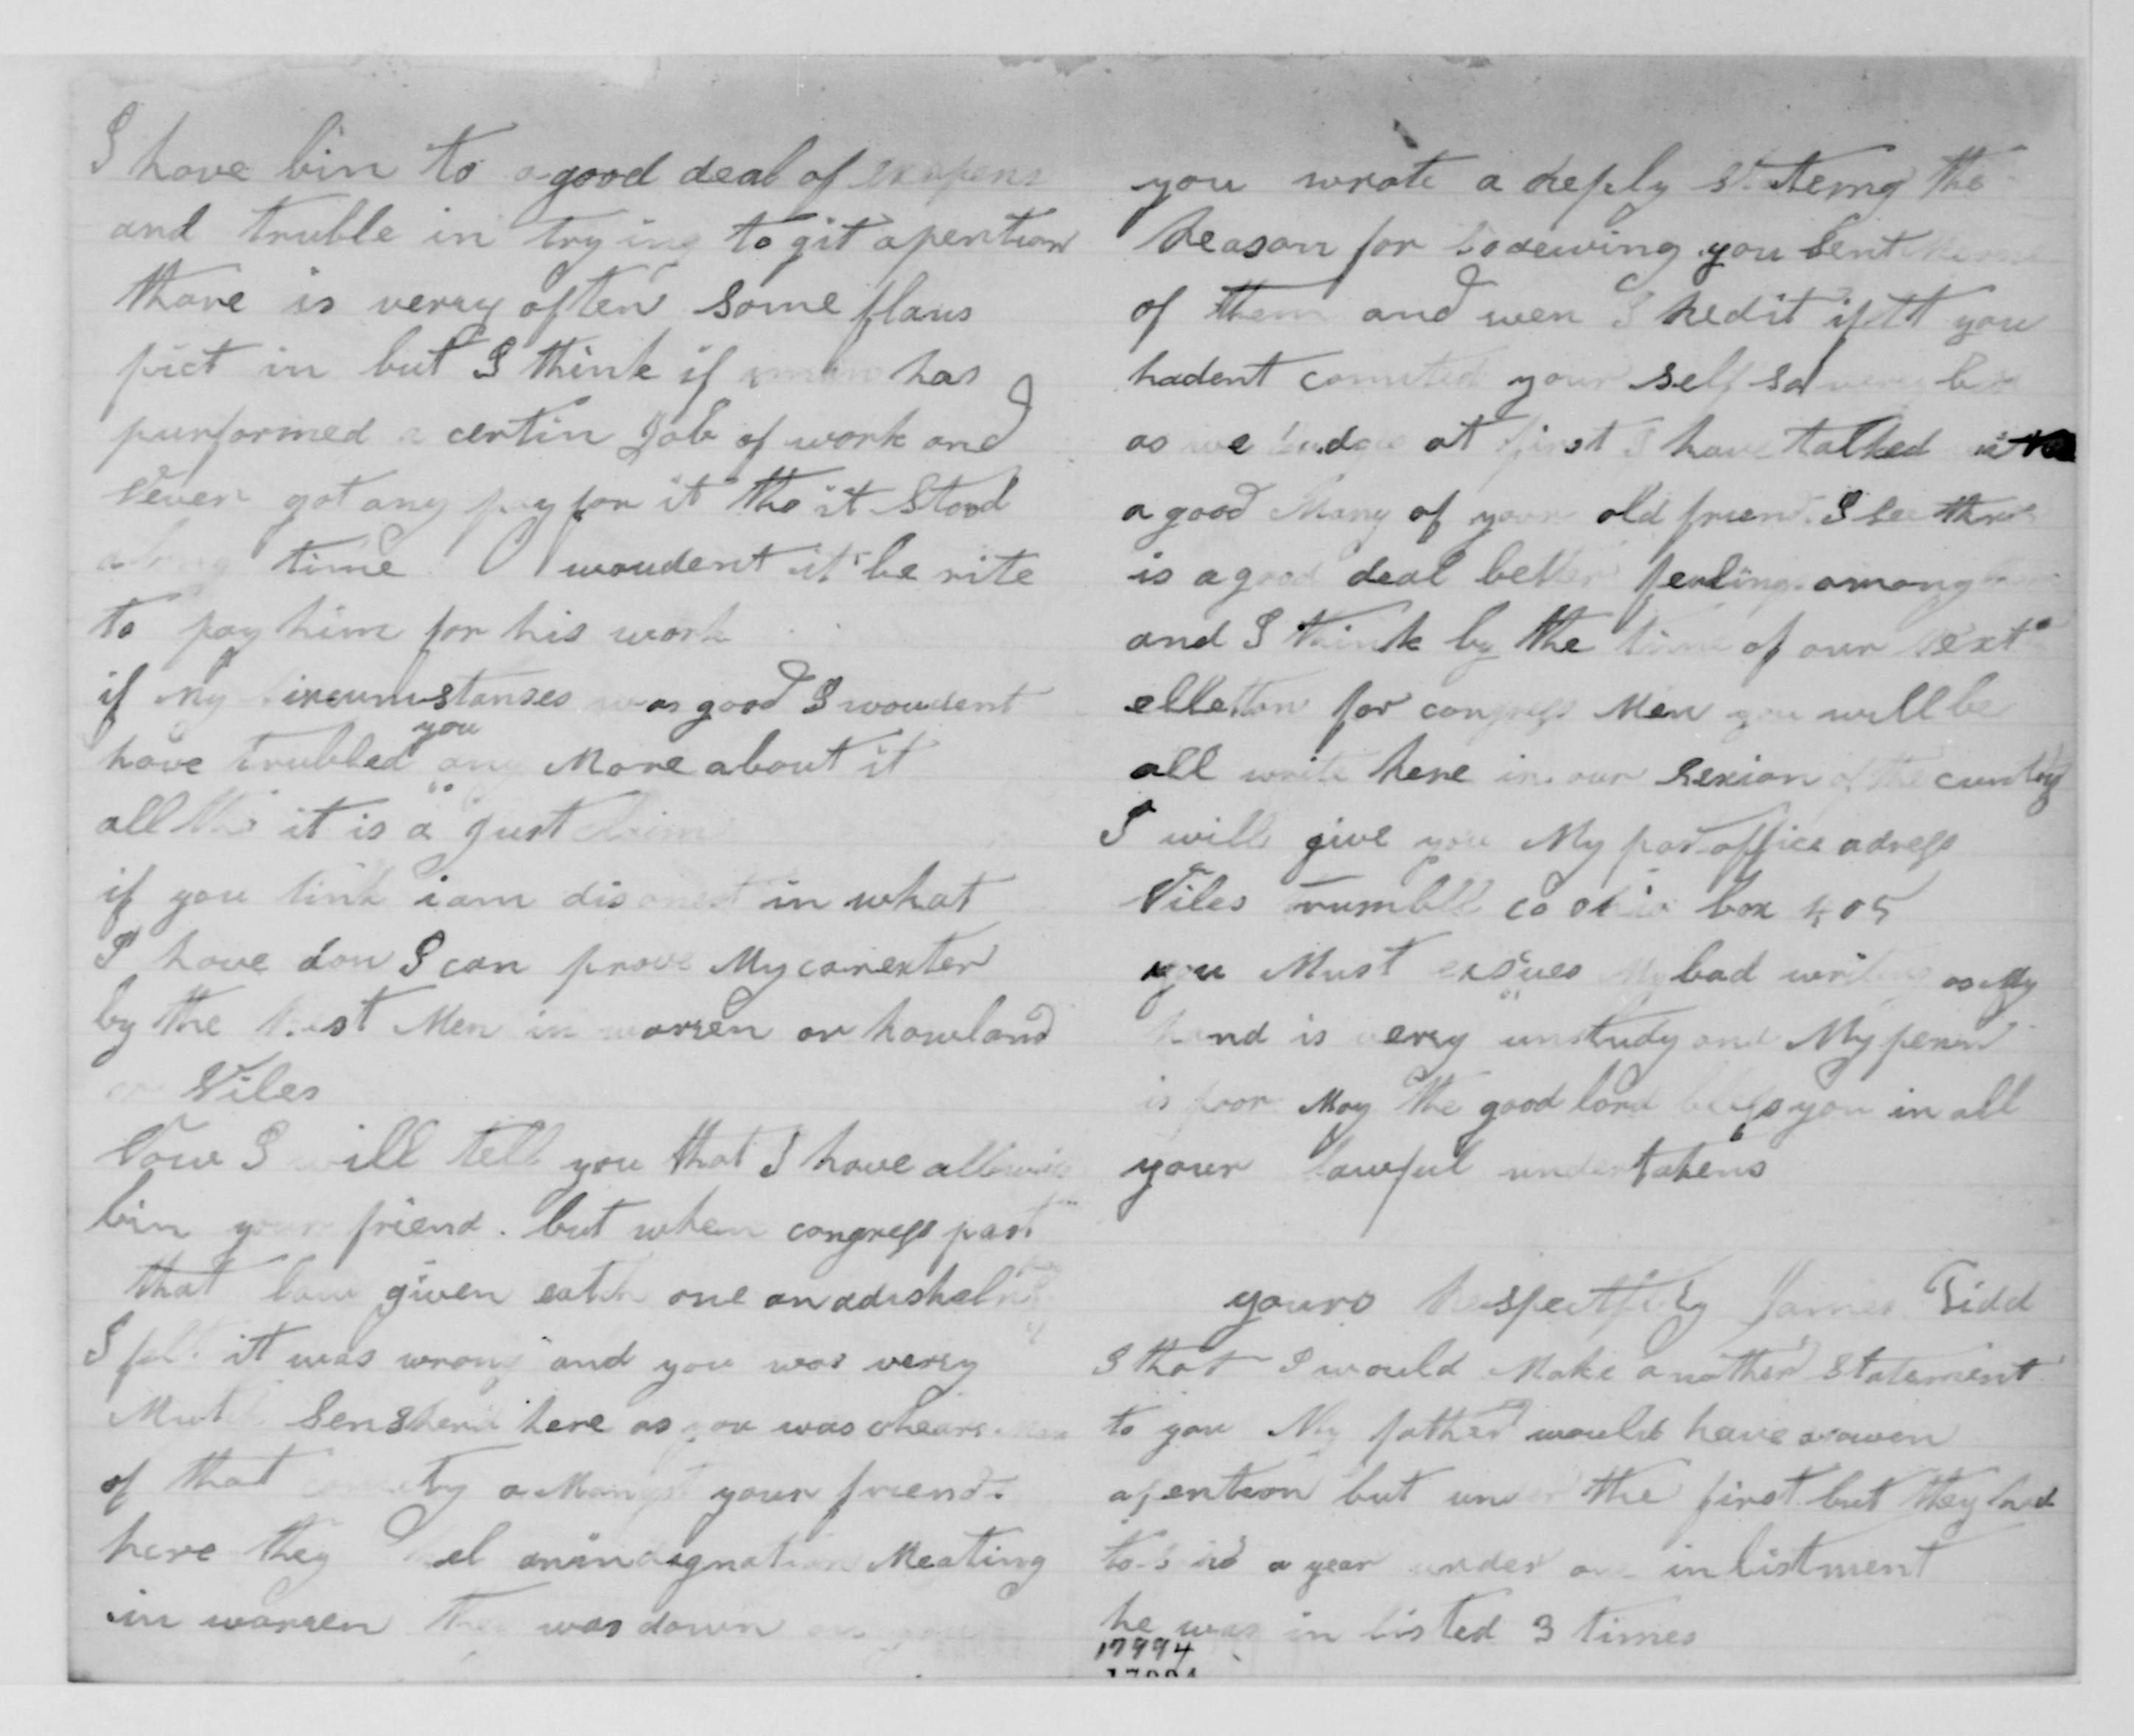 I have bin to a good deal of exspens
and truble in trying to git apention
thare is verry often some flaus
pict in but I think if a man has
purformed a certin Job of work and
Never got any pay for it tho it stood
a long time woudent it be rite
to pay him for his work
if my sircumstanses was good I woudent
have trubled you any More about it
all tho it is a just claim
if you tink i am disonest in what
I have don I can prove My carexter
by the best Men in warren or howland
or Niles
Now I will tell you that I have allways
bin your friend . but when congress past
that law given eatch one an
I felt it was wrong and you was verry
Mutch Sensherd here as you was
of that amongst your friends
here they hel an indignation Meating
in warren they was down on you
you wrote a Reply steteing the
Reason for so dewing you sent
of them and wen I red it if tt you
hadent comited your self so verry bad
as we Judge at first I have talked with
a good Many of your old friends I see thare
is a good deal better fealing among
and I think by the time of our Next
ellettion for congress Men you will be
all write here in our Sexion of the cuntry
I will give you My post office adress
Niles trumbll co ohio box 405
you Must exsues My bad writing as My
hand is verry unstudy and My penn
is poor May the good lord bless you in all
your lawful undertakens
yours Respectfuly James Tidd
I that I would Make another statement
to you My father would have
apention but under the first but they had
to a year under one inlistment
he was in listed 3 times
17994
17994